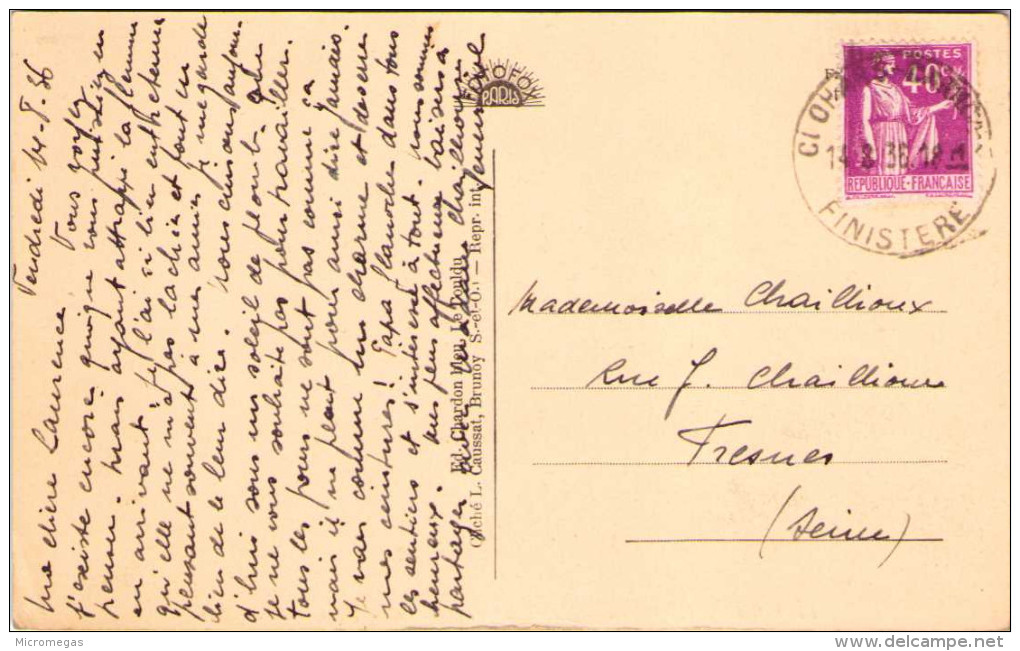 Vendredi 14-8-36
Ma chère Laurence Vous voyez
j'existe encore quoique vous puissiez en
penser. Mais ayant attrapé la flemme
en arrivant ici je l'ai si bien entretenue
qu'elle ne m'a pas lâchée et tout en
pensant souvent à mes amies je me garde
bien de le leur dire. Nous cuisons aujour-
d'hui sous un soleil de plomb que
je ne vous souhaite pas pour travailler.
Tous les jours ne sont pas comme ça
mais il ne pleut pour ainsi dire jamais.
Je nage comme un charme et desserre
mes ceintures! Papa flanoche dans tous
les sentiers et s'intéresse à tout. nous sommes
heureux. mes plus affectueux baisers à
partager avec Madame Chaillioux
FOTOFOX
PARIS
Ed. Chardon Bleu, Le Pouldu
Cliché L. Caussat, Brunoy S.-et-O. — Repr. int.
POSTES
40c
REPUBLIQUE-FRANÇAISE
14.8.36
FINISTERE
Mademoiselle Chaillioux
Rue J. Chaillioux
Fresnes
(Seine)
Micromegas
www.delcampe.net